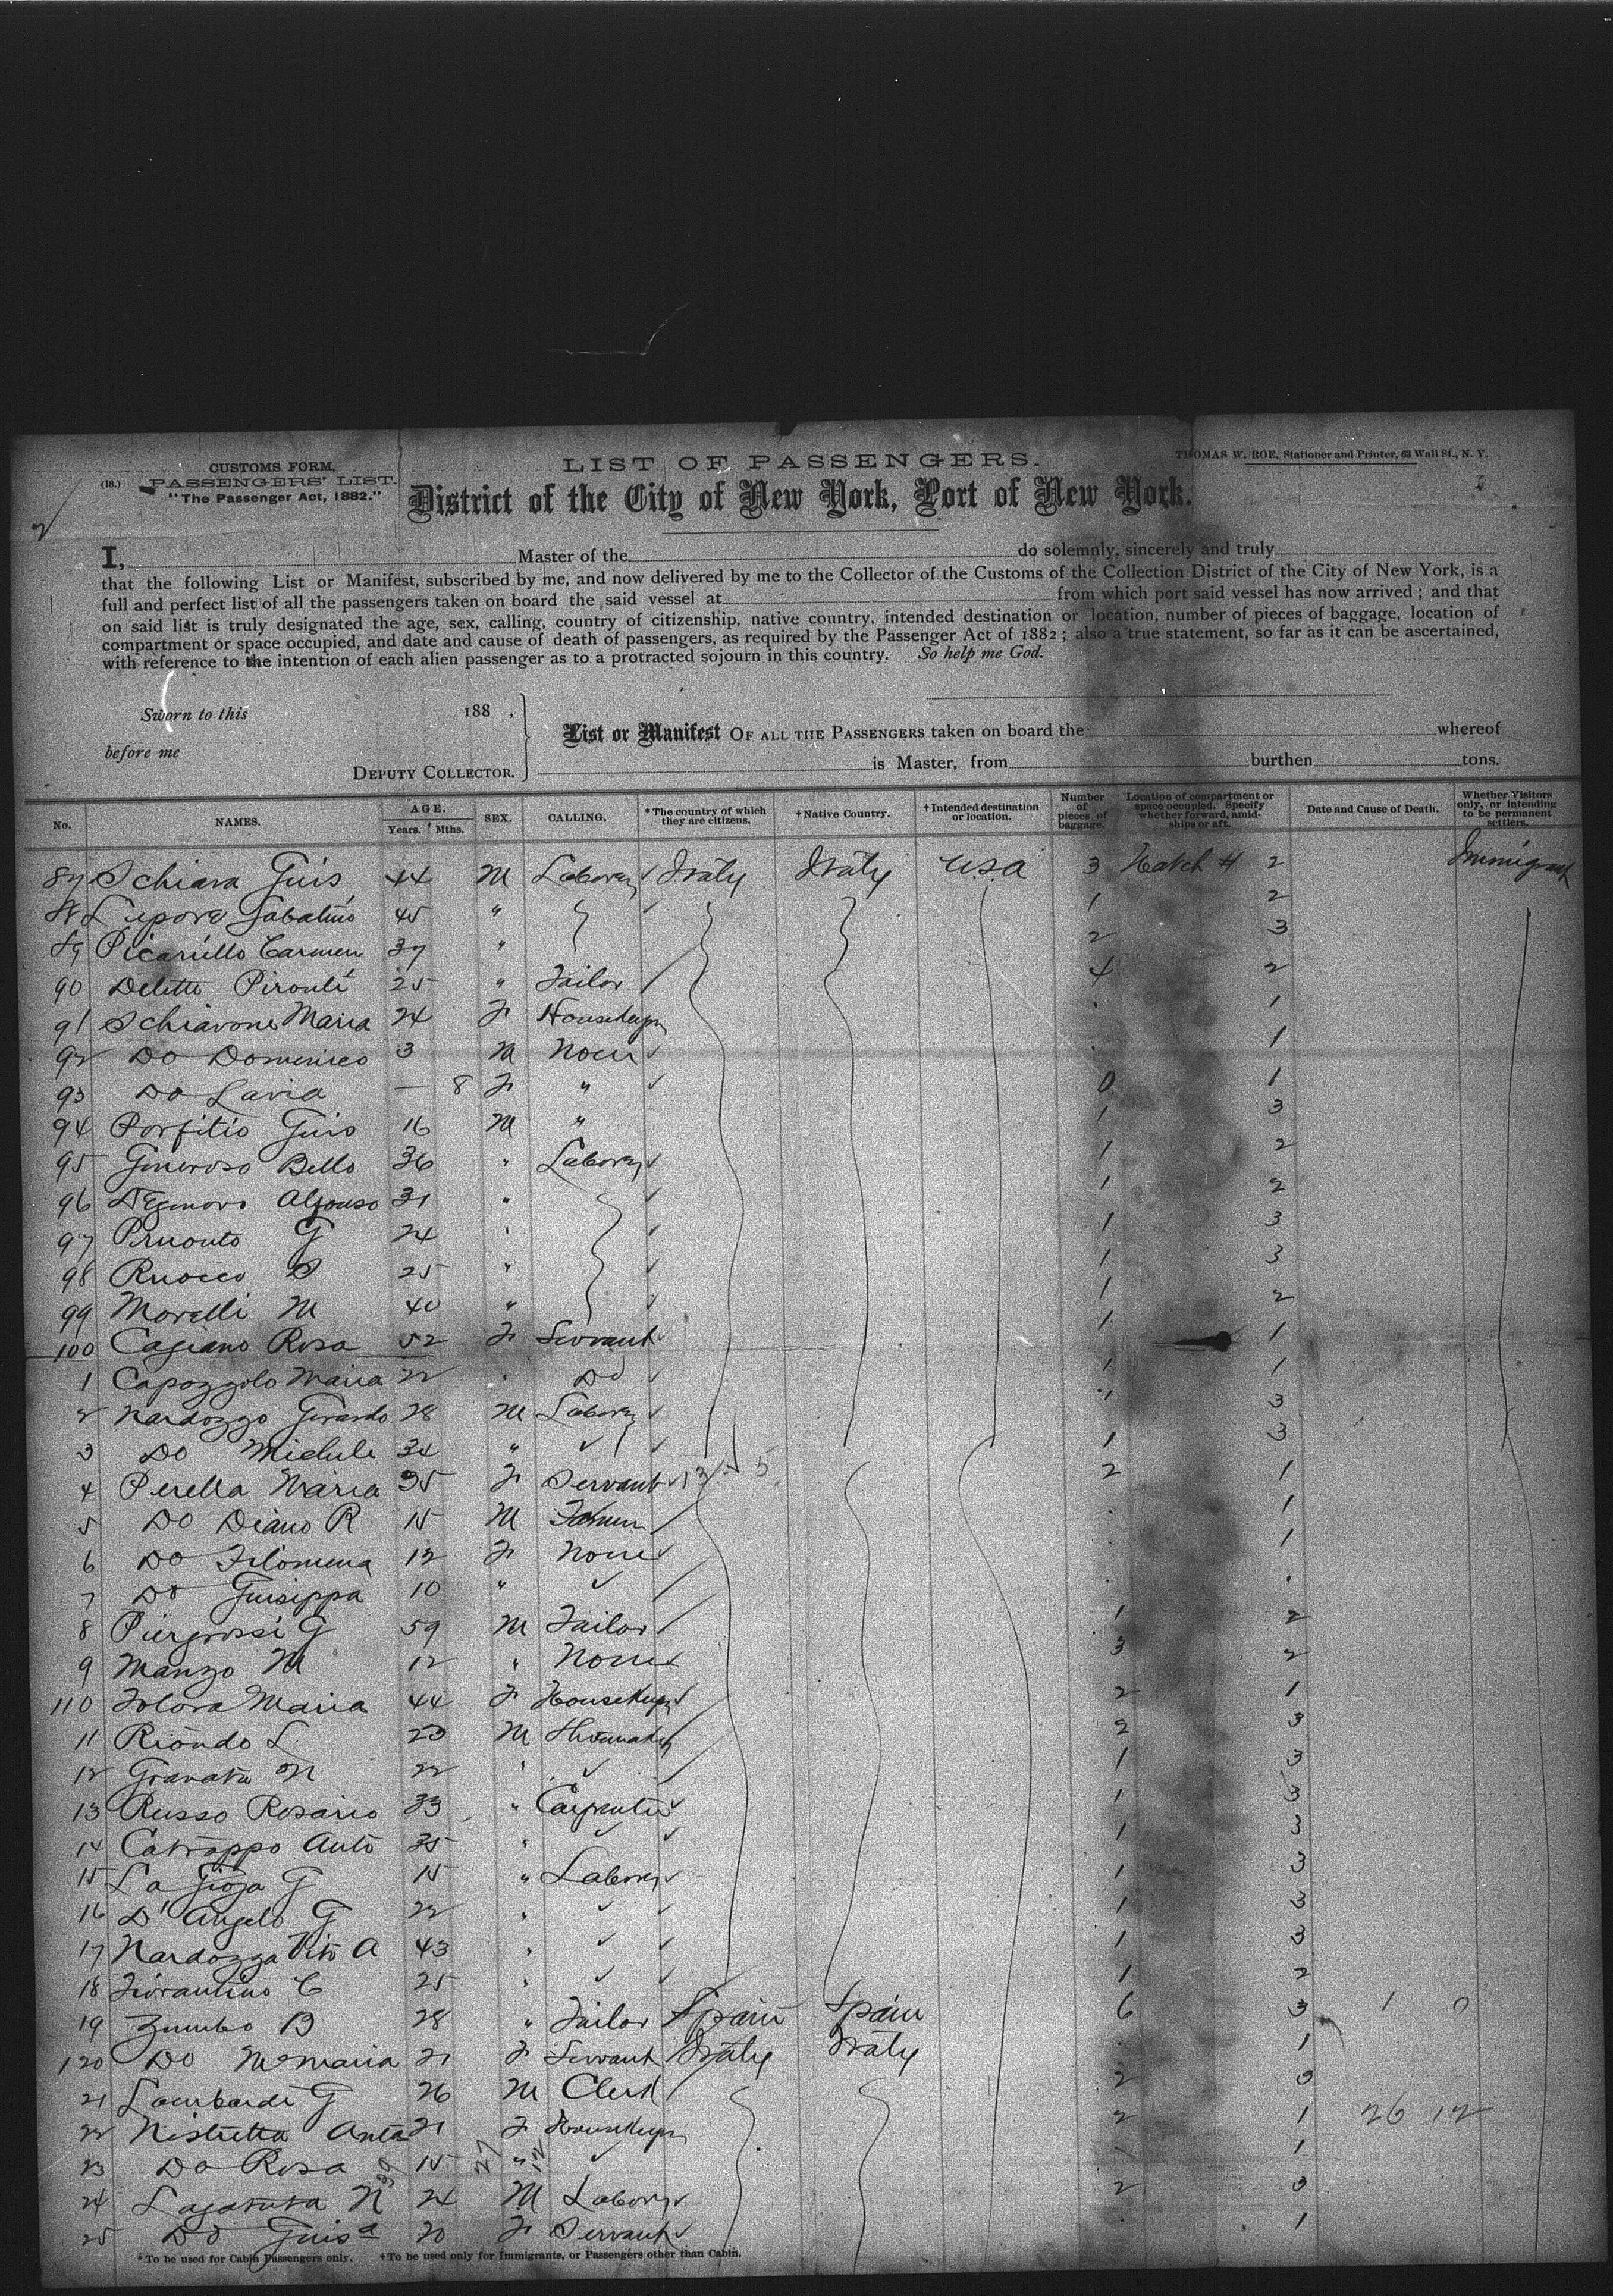 CUSTOMS FORM,
(18.) PASSENGERS' LIST.
"The Passenger Act, 1882."
LIST OF PASSENGERS.
THOMAS W. ROE, Stationer and Printer, 63 Wall St., N. Y.
District of the City of New York, Port of New York.
I, Master of the do solemnly, sincerely and truly
that the following List or Manifest, subscribed by me, and now delivered by me to the Collector of the Customs of the Collection District of the City of New York, is a
full and perfect list of all the passengers taken on board the said vessel at from which port said vessel has now arrived ; and that
on said list is truly designated the age, sex, calling, country of citizenship, native country, intended destination or location, number of pieces of baggage, location of
compartment or space occupied, and date and cause of death of passengers, as required by the Passenger Act of 1882 ; also a true statement, so far as it can be ascertained,
with reference to the intention of each alien passenger as to a protracted sojourn in this country. So help me God.
Sworn to this 188 .
before me
DEPUTY COLLECTOR.
List or Manifest OF ALL THE PASSENGERS taken on board the whereof
is Master, from burthen tons.
No. NAMES. AGE. Years. Mths. SEX. CALLING. *The country of which they are citizens. †Native Country. †Intended destination or location. Number of pieces of baggage. Location of compartment or space occupied. Specify whether forward, amidships or aft. Date and Cause of Death. Whether Visitors only, or intending to be permanent settlers.
87 Schiara Guis 44 M Laborer Italy Italy USA 3 Hatch # 2 Immigrant
88 Lepore Sabatino 45 " 1 2
89 Picariello Carmen 37 " 2 3
90 Pironti 25 " Tailor 4 2
91 Schiavone Maria 24 F Housekeeper 1
92 Do Domenico 3 M None 1
93 Do Lavia — 8 F " 0 1
94 Porfitio Guis 16 M " 1 3
95 Generoso Bello 36 " Laborer 1 2
96 Alfonso 31 " 1 2
97 G 24 " 1 3
98 Ruocco 25 " 1 3
99 Morelli M 40 " 1 2
100 Cagiano Rosa 52 F Servant 1 1
1 Capozzolo Maria 22 " Do 1 1
2 Nardozzo Gerardo 28 M Laborer 1 3
3 Do Michele 34 " 1 3
4 Perella Maria 35 F Servant 2 1
5 Do Diano R 15 M 1
6 Do Filomena 12 F None 1
7 Do Guiseppa 10 "
8 Piergrossi G 59 M Tailor 1 2
9 Manzo M 12 " None 3 2
110 Maria 44 F Housekeeper 2 1
11 Riondo L. 23 M Shoemaker 2 3
12 Granata N 22 " 1 3
13 Russo Rosario 33 " Carpenter 1 3
14 Catrappo Anto 35 " 1 3
15 La Gioja G 15 " Laborer 1 3
16 D'Angelo G 22 " 1 3
17 Nardozza Vito A 43 " 1 3
18 Fiorantino C 25 " 1 2
19 Zumbo B 28 " Tailor Spain Spain 6 3 1 0
120 Do Maria 21 F Servant Italy Italy 1
21 Lombardi G 26 M Clerk 2 3
22 Nistretta Anta 21 F Housekeeper 2 1 26 12
23 Do Rosa 15 " 1
24 N 24 M Laborer 2 3
25 Do Guisa 20 F Servant 1
*To be used for Cabin Passengers only. †To be used only for Immigrants, or Passengers other than Cabin.